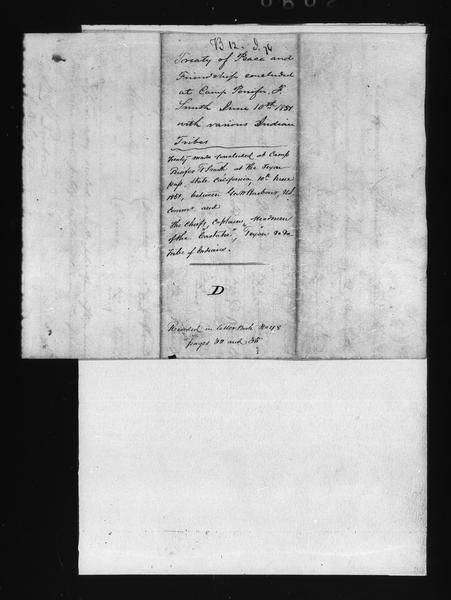 B 12.
Treaty of Peace and
Friendship concluded
at Camp Persifer, F.
Smith June 10th 1851
with various Indian
Tribes
Treaty made & concluded at Camp
Persifer F Smith at the Texon
pass, State California, 10th June
1851, between Geo W Barbour, U.S.
Commr. and
The Chiefs, Captains, & Headmen
of the "Castake", "Texon" &c &c
tribe of Indians.
D
Recorded in letter Book
pages 30 and 35